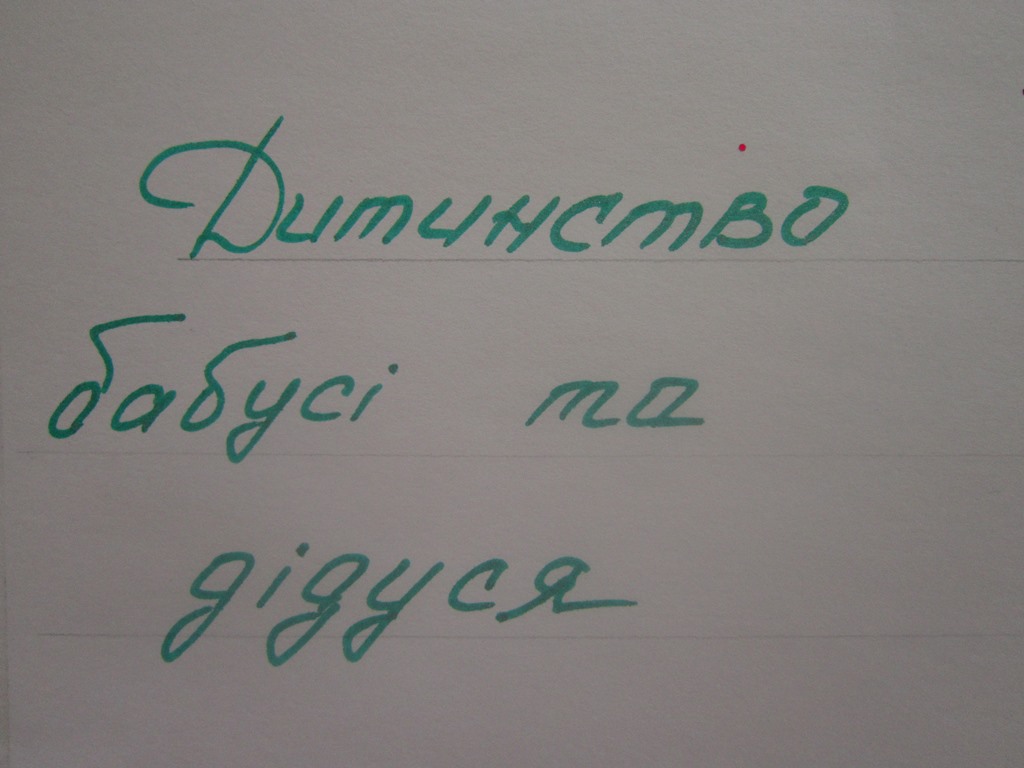 Дитинство
бабусі та
дідуся